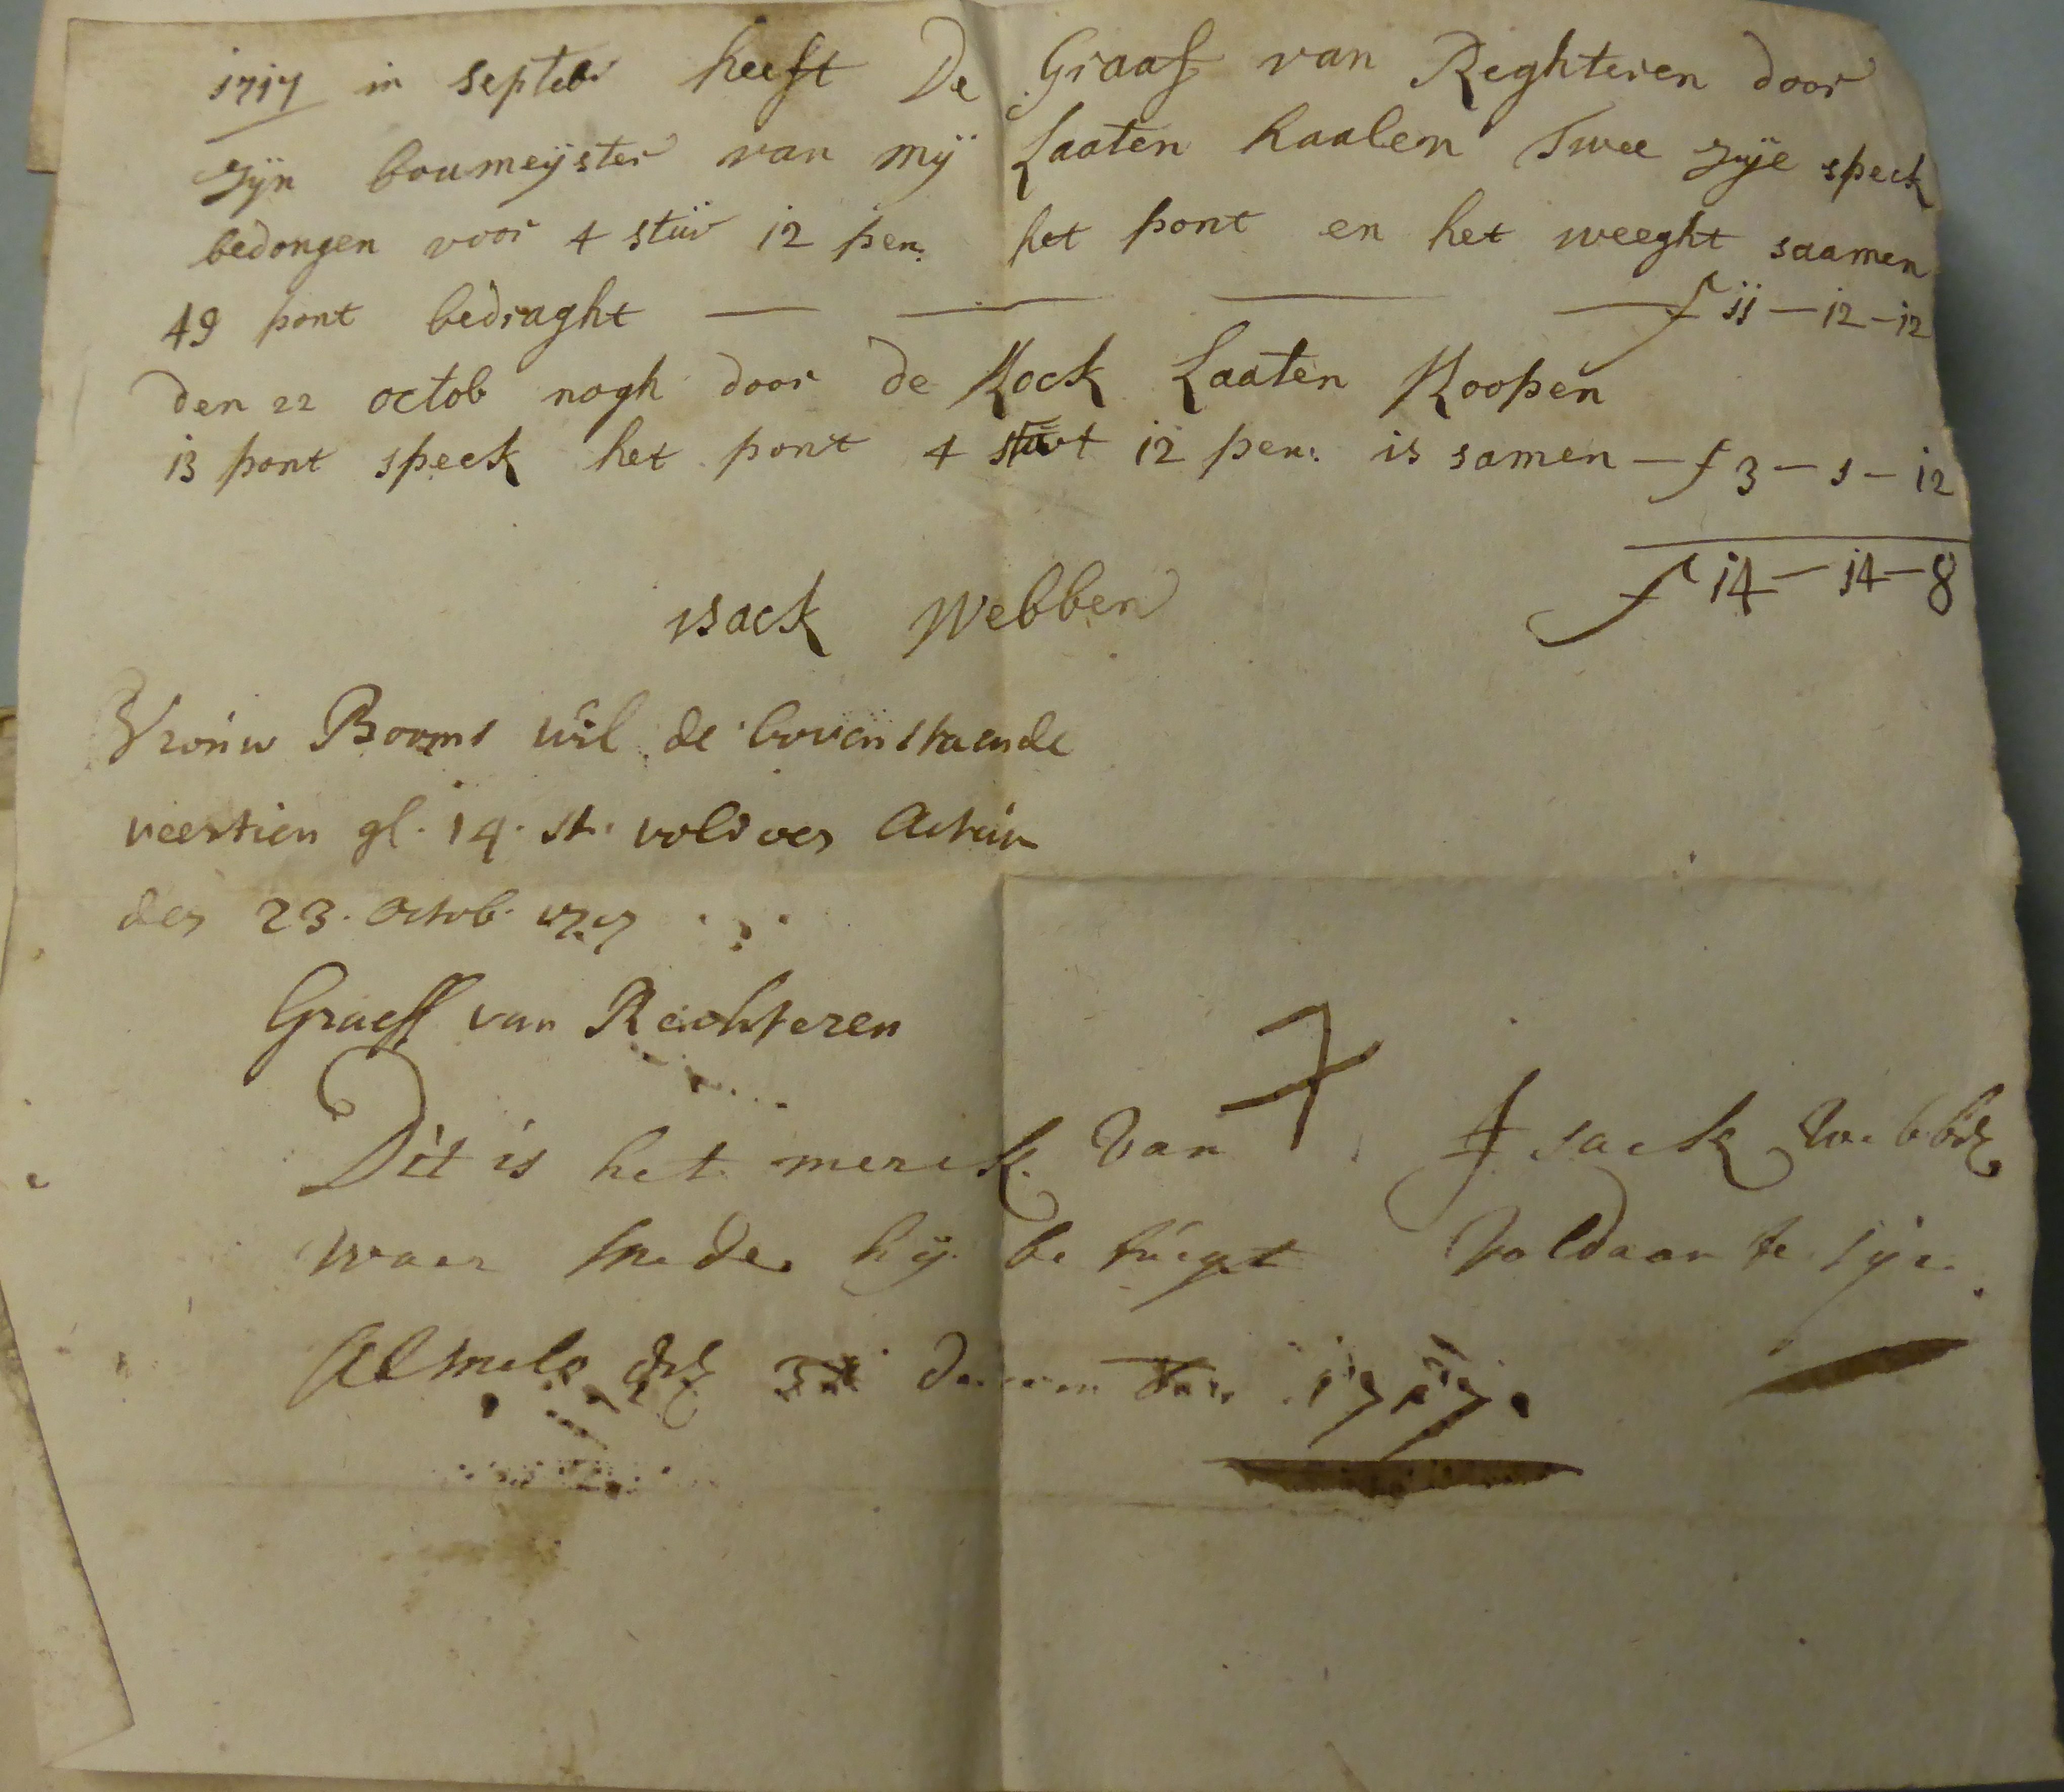 1717 in septebr heeft De Graaf van Reghteren door
zÿn boumeÿster van mÿ Laaten haalen Twee zÿe speck
bedongen voor 4 stüv 12 pen: het pont en het weeght saamen
49 pont bedraght — — — — f 11 — 12 — 12
den 22 octob nogh door de Kock Laaten Koopen
13 pont speck het pont 4 stuv 12 pen: is samen — f 3 — 1 — 12
f 14 — 14 — 8
isack Webben
Vrouw Booms wil de bovenstaende
veertien gl. 14. st. voldoen Actum
den 23. Octob. 1717
Graeff van Rechteren
Dit is het merck van Isack Webben
waer mede hÿ betuigt Voldaan te sÿn
Almelo den 1717.